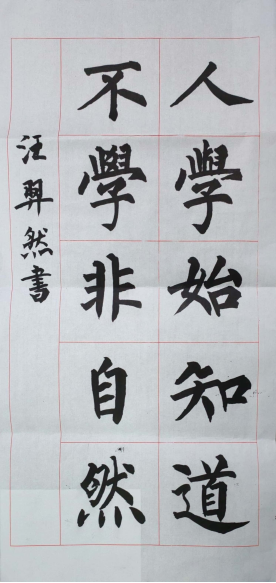 人學始知道
不學非自然
汪羿然書